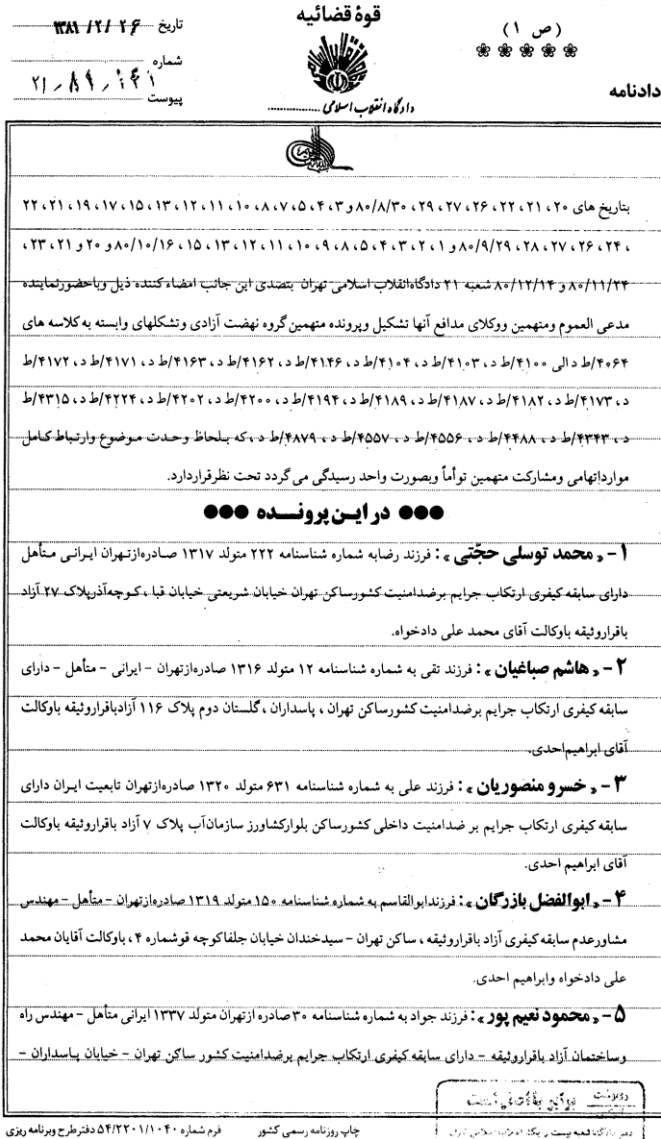 (ص ۱)
دادنامه
قوهٔ قضائیه
دادگاه انقلاب اسلامی
تاریخ ۱۳۸۱/۲/۲۶
شماره
پیوست
بتاریخ های ۲۰، ۲۱، ۲۲، ۲۶، ۲۷، ۲۹، ۸۰/۸/۳۰ و ۳، ۴، ۵، ۷، ۸، ۱۰، ۱۱، ۱۲، ۱۳، ۱۵، ۱۷، ۱۹، ۲۱، ۲۲
، ۲۴، ۲۶، ۲۷، ۲۸، ۸۰/۹/۲۹ و ۱، ۲، ۳، ۴، ۵، ۸، ۹، ۱۰، ۱۱، ۱۲، ۱۳، ۱۵، ۸۰/۱۰/۱۶ و ۲۰ و ۲۱، ۲۳،
۸۰/۱۱/۲۴ و ۸۰/۱۲/۱۴ شعبه ۲۱ دادگاه انقلاب اسلامی تهران بتصدی این جانب امضاء کننده ذیل وباحضورنماینده
مدعی العموم ومتهمین ووکلای مدافع آنها تشکیل وپرونده متهمین گروه نهضت آزادی وتشکلهای وابسته به کلاسه های
۴۰۶۴/ط د الی ۴۱۰۰/ط د، ۴۱۰۳/ط د، ۴۱۰۴/ط د، ۴۱۴۶/ط د، ۴۱۶۲/ط د، ۴۱۶۳/ط د، ۴۱۷۱/ط د، ۴۱۷۲/ط
د، ۴۱۷۳/ط د، ۴۱۸۲/ط د، ۴۱۸۷/ط د، ۴۱۸۹/ط د، ۴۱۹۴/ط د، ۴۲۰۰/ط د، ۴۲۰۲/ط د، ۴۲۲۴/ط د، ۴۳۱۵/ط
د، ۴۳۴۳/ط د، ۴۴۸۸/ط د، ۴۵۵۶/ط د، ۴۵۵۷/ط د، ۴۸۷۹/ط د، که بلحاظ وحدت موضوع وارتباط کامل
مواردِاتهامی ومشارکت متهمین توأماً وبصورت واحد رسیدگی می گردد تحت نظرقراردارد.
●●● در این پرونده ●●●
۱ - « محمد توسلی حجّتی » : فرزند رضابه شماره شناسنامه ۲۲۲ متولد ۱۳۱۷ صادره ازتهران ایرانی متأهل
دارای سابقه کیفری ارتکاب جرایم برضدامنیت کشورساکن تهران خیابان شریعتی خیابان قبا، کوچه آذرپلاک ۲۷ آزاد
باقراروثیقه باوکالت آقای محمد علی دادخواه.
۲ - « هاشم صباغیان » : فرزند تقی به شماره شناسنامه ۱۲ متولد ۱۳۱۶ صادره ازتهران - ایرانی - متأهل - دارای
سابقه کیفری ارتکاب جرایم برضدامنیت کشورساکن تهران ، پاسداران ، گلستان دوم پلاک ۱۱۶ آزادباقراروثیقه باوکالت
آقای ابراهیم احدی.
۳ - « خسرو منصوریان » : فرزند علی به شماره شناسنامه ۶۳۱ متولد ۱۳۲۰ صادره ازتهران تابعیت ایران دارای
سابقه کیفری ارتکاب جرایم بر ضدامنیت داخلی کشورساکن بلوارکشاورز سازمان آب پلاک ۷ آزاد باقراروثیقه باوکالت
آقای ابراهیم احدی.
۴ - « ابوالفضل بازرگان » : فرزندابوالقاسم به شماره شناسنامه ۱۵۰ متولد ۱۳۱۹ صادره ازتهران - متأهل - مهندس
مشاورعدم سابقه کیفری آزاد باقراروثیقه ، ساکن تهران - سیدخندان خیابان جلفاکوچه قوشماره ۴ ، باوکالت آقایان محمد
علی دادخواه وابراهیم احدی.
۵ - « محمود نعیم پور » : فرزند جواد به شماره شناسنامه ۳۰ صادره ازتهران متولد ۱۳۳۷ ایرانی متأهل - مهندس راه
وساختمان آزاد باقراروثیقه - دارای سابقه کیفری ارتکاب جرایم برضدامنیت کشور ساکن تهران - خیابان پاسداران -
رونوشت برابر بااصل است
چاپ روزنامه رسمی کشور
فرم شماره ۵۴/۲۲۰۱/۱۰۴۰ دفترطرح وبرنامه ریزی